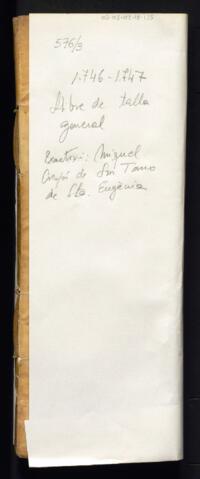 576/3
1.746-1.747
Llibre de talla
general
Miquel
de Son Tano
de Sta. Eugènia